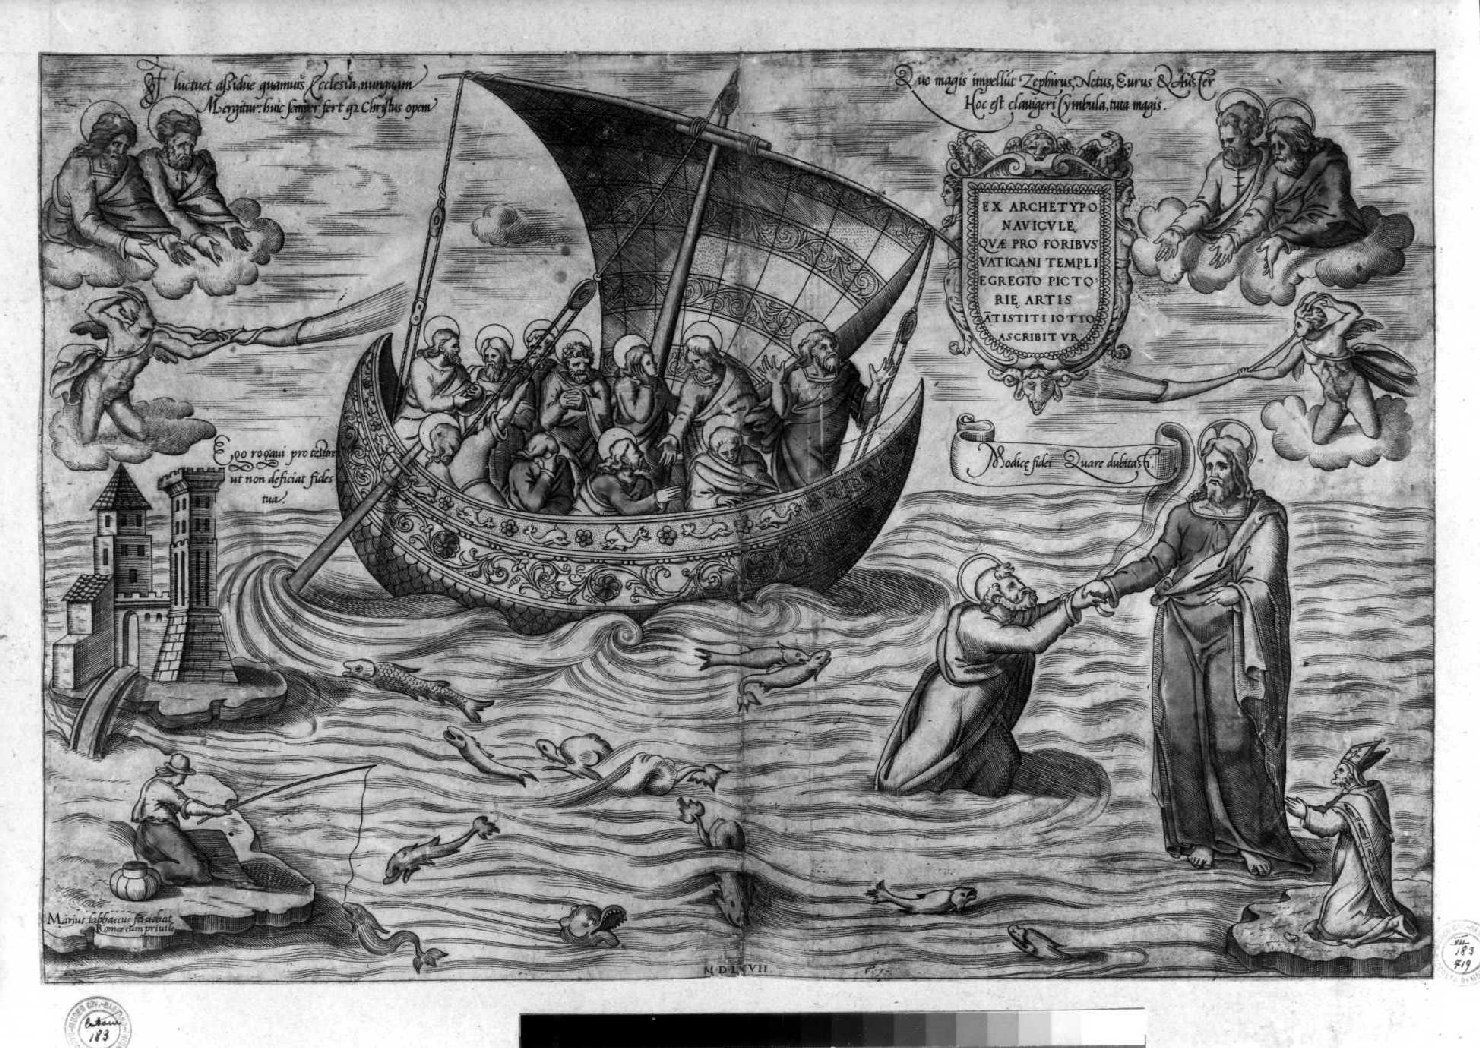 Fluctuet assidue quamuis Ecclesia, nunquam
Mergitur: huic semper fert qz Christus opem
Quo magis impellūt Zephirus, Notus, Eurus & Auster
Hoc est clauigeri Cymbula, tuta magis.
EX ARCHETYPO
NAVICVLĘ,
QVÆ PRO FORIBVS
VATICANI TEMPLI
EGREGIO PICTO
RIĘ ARTIS
ĀTISTITI IOTTO
ASCRIBITVR
Ego rogaui pro te
ut non deficiat fides
tua.
Modicę fidei Quare dubitasti.
Marius labbaccus
Romae cum priuile
M·D·LXVII
183
183